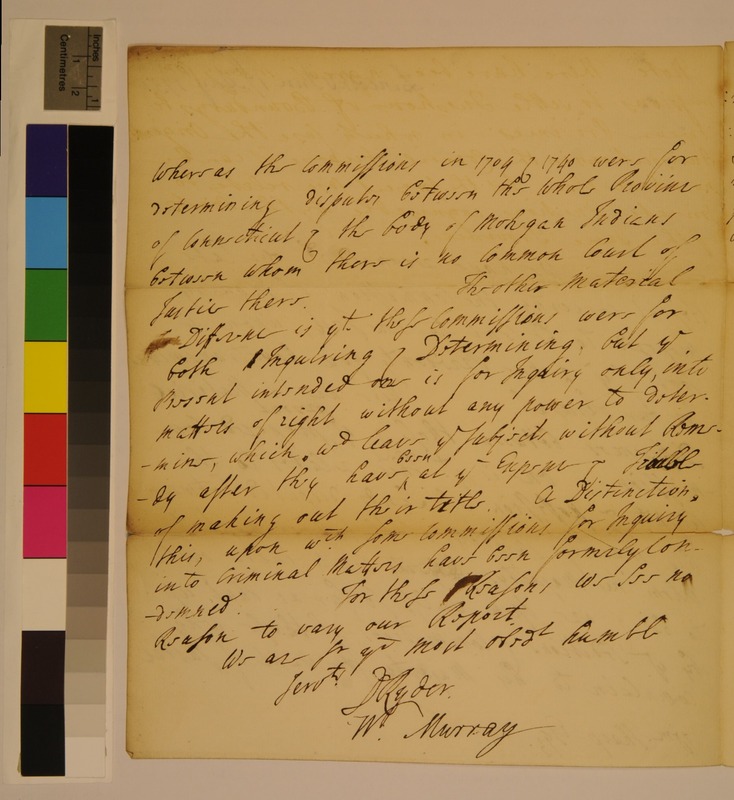 whereas the Commissions in 1704 & 1740 were for
determining disputes between the whole Province
of Connecticut & the body of Mohegan Indians
between whom there is no Common Court of
Justice there. The other Material
Difference is yt. these Commissions were for
both Inquiring & Determining. but ye
Present intended one is for Inquiry only, into
matters of right without any power to deter-
-mine, which wd leave ye Subjects without Reme-
-dy after they have been at ye Expence & Trouble
of making out their title. A Distinction,
this, upon wch. some Commissions for Inquiry
into Criminal Matters have been formerly Con-
-demned. For these Reasons We see no
Reason to vary our Report.
We are Sr yr most obedt humble
Servts.
D Ryder.
W. Murray
inches
Centimetres
1
2
1